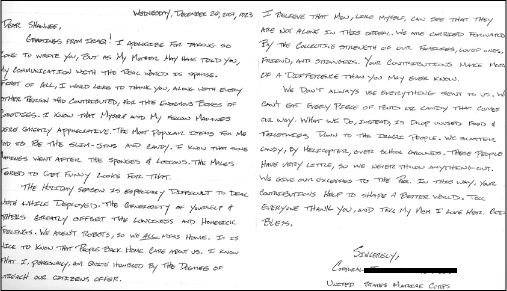 Wednesday, December 26, 2007, 1823
Dear Shawnee,
Greetings from Iraq! I apologize for taking so
long to write you, but as my mother may have told you,
my communication with the real world is sparse.
First of all, I would like to thank you, along with every
other person who contributed, for the enormous boxes of
goodies. I know that myself and my fellow Marines
were greatly appreciative. The most popular items for me
had to be the Slim-Jims and candy. I know that some
Marines went after the sponges & lotions. The males
tended to get funny looks for that.
The holiday season is especially difficult to deal
with while deployed. The generosity of yourself &
others greatly offset the loneliness and homesick
feelings. We aren't robots, so we all miss home. It is
nice to know that people back home care about us. I know
that I, personally, am quite humbled by the degrees of
outreach our citizens offer.
I believe that Men, like myself, can see that they
are not alone in this ordeal. We are carried forward
by the collective strength of our families, loved ones,
friend, and strangers. Your contributions make more
of a difference than you may ever know.
We don't always use everything sent to us. We
can't eat every piece of food or candy that comes
our way. What we do, instead, is drop unused food &
toiletries down to the Iraqi people. We scatter
candy, by helicopter, over school grounds. These people
have very little, so we never throw anything out.
We give our excesses to the poor in this way. Your
contributions help to shape a better world. Tell
everyone thank you, and tell my mom I love her. God
Bless.
Sincerely,
Corporal
United States Marine Corps